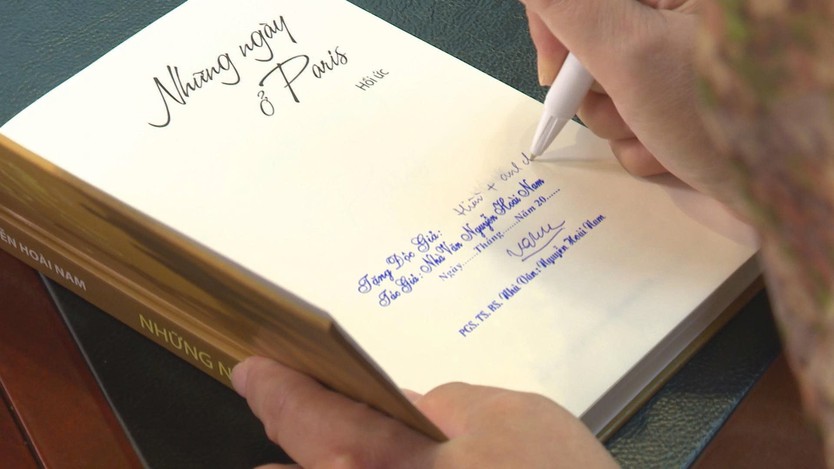 Những ngày
ở Paris
Hồi ức
Tặng Độc Giả:
Tác Giả: Nhà Văn Nguyễn Hoài Nam
Ngày......Tháng......Năm 20......
PGS. TS. BS. Nhà Văn: Nguyễn Hoài Nam
HOÀI NAM
NHỮNG